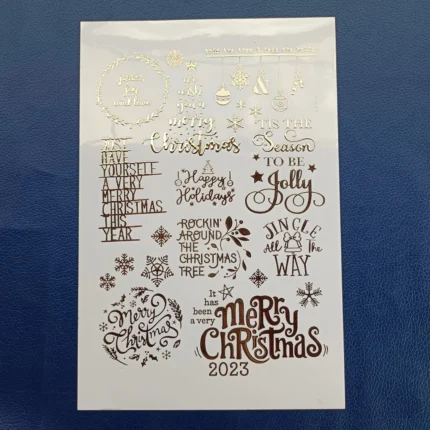 Peace
joy
and love
we
wish
you a
merry
Christmas
'TIS THE
Season
TO BE
Jolly
HAVE
YOURSELF
A VERY
MERRY
CHRISTMAS
THIS
YEAR
Happy
Holidays
ROCKIN'
AROUND
THE
CHRISTMAS
TREE
JINGLE
All The
WAY
Merry
Christmas
It
has
been
a very
Merry
Christmas
2023